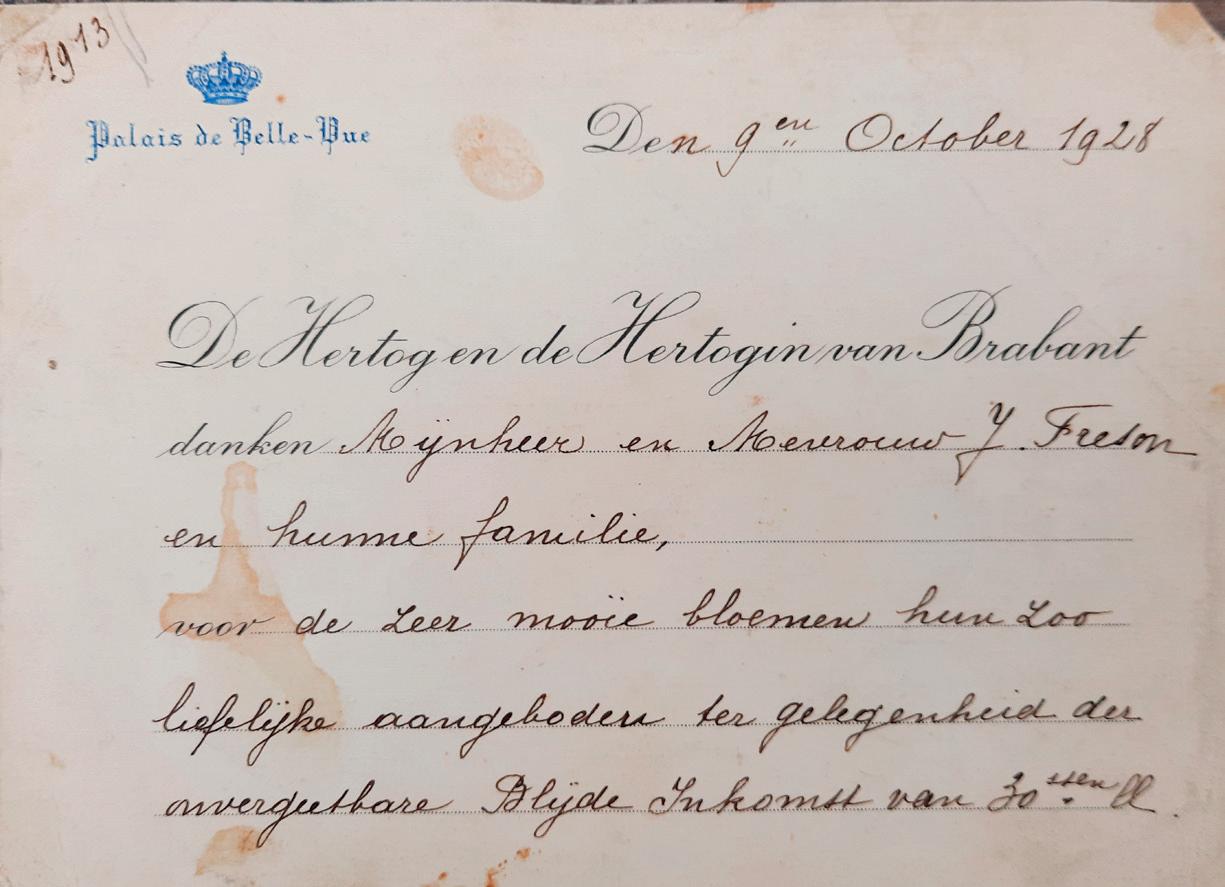 1913
Palais de Belle-Vue
Den 9en October 1928
De Hertog en de Hertogin van Brabant
danken Mijnheer en Mevrouw J. Freson
en hunne familie,
voor de zeer mooïe bloemen hun zoo
liefelijke aangeboden ter gelegenheid der
onvergeetbare Blijde Inkomst van 30sten ll